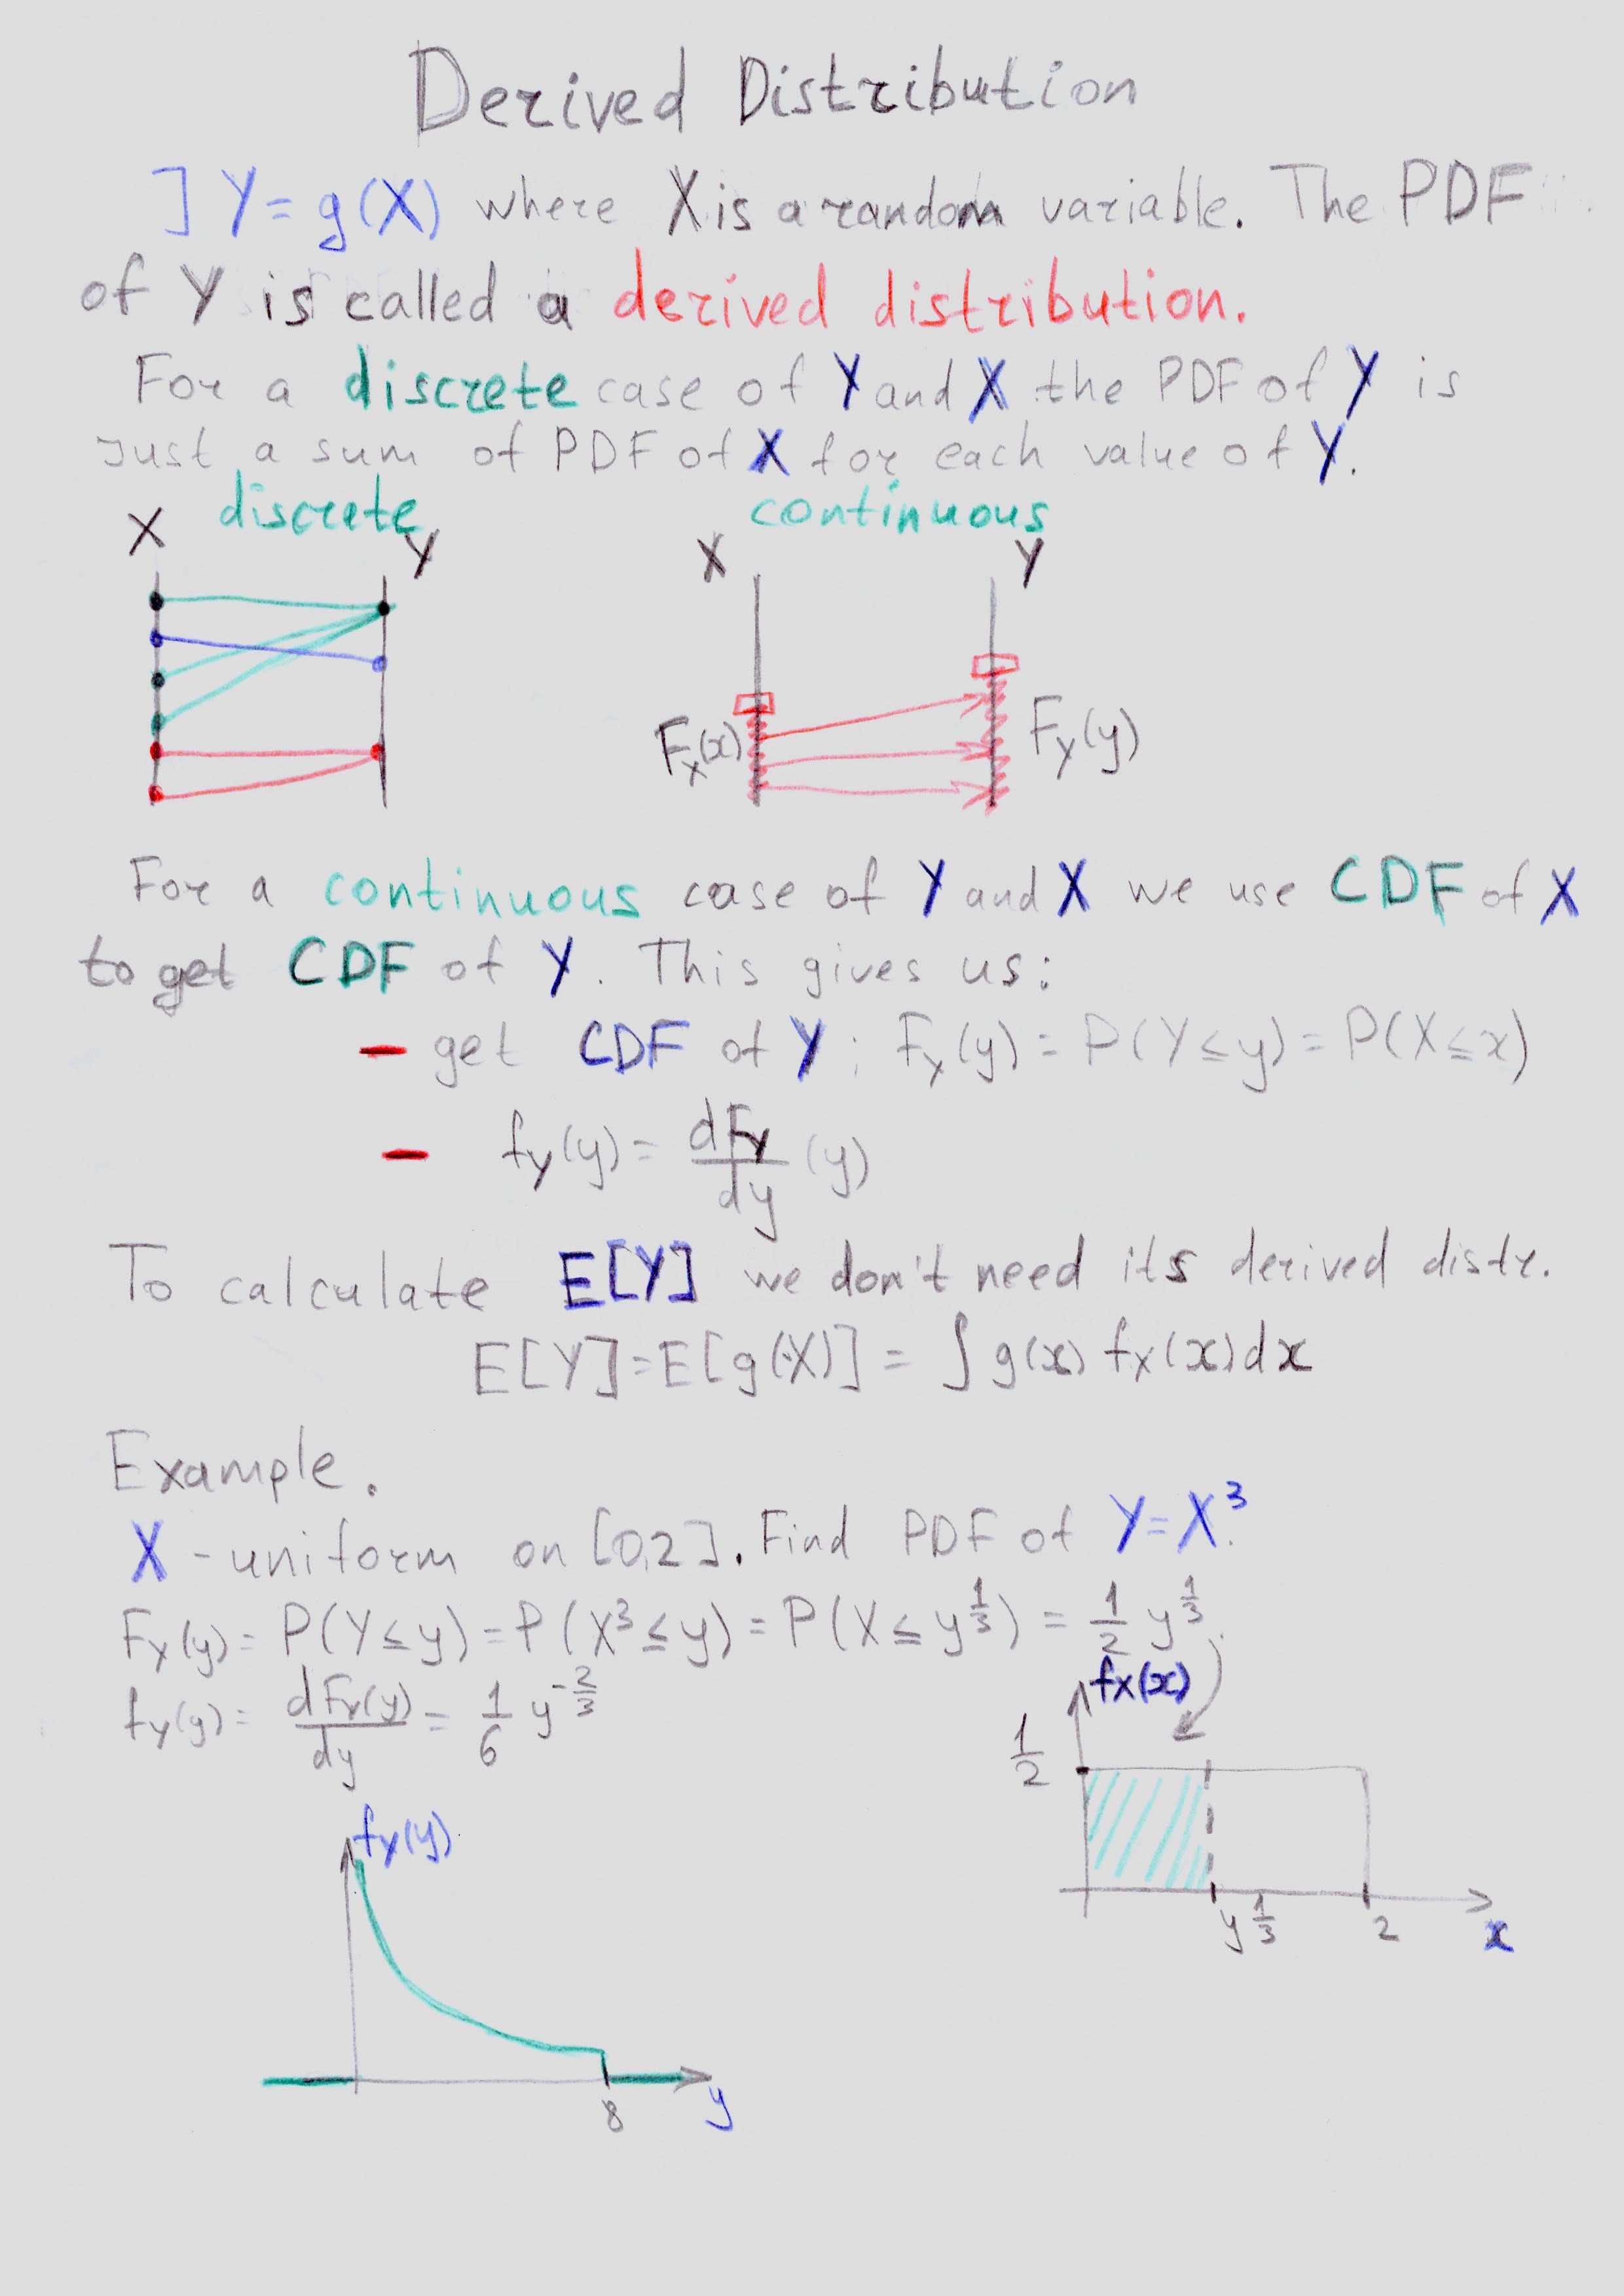 Derived Distribution
] Y = g(X) where X is a random variable. The PDF
of Y is called a derived distribution.
For a discrete case of Y and X the PDF of Y is
just a sum of PDF of X for each value of Y.
discrete continuous
X Y X Y
F_X(x) F_Y(y)
For a continuous case of Y and X we use CDF of X
to get CDF of Y. This gives us:
- get CDF of Y: F_Y(y) = P(Y ≤ y) = P(X ≤ x)
- f_Y(y) = dF_Y/dy (y)
To calculate E[Y] we don't need its derived distr.
E[Y] = E[g(X)] = ∫ g(x) f_X(x) dx
Example.
X - uniform on [0,2]. Find PDF of Y = X³.
F_Y(y) = P(Y ≤ y) = P(X³ ≤ y) = P(X ≤ y^{1/3}) = 1/2 y^{1/3}.
f_Y(y) = dF_Y(y)/dy = 1/6 y^{-2/3}
f_X(x)
1/2
y^{1/3} 2 x
f_Y(y)
8 y